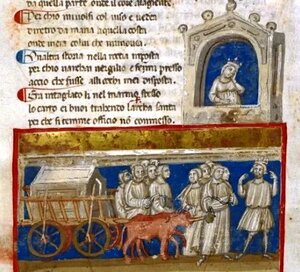 da quella parte onde il core alagente
Per chio mi uolsi col uiso e uedea
diretro da maria da quella costa
onde mera colui che mi mouea
Unaltra storia nella roccia imposta
per chio uarchai uergilio e femi presso
accio che fusse alli occhi mei disposta
Era intagliato li nel marmo stesso
lo carro e i buoi trahendo larcha santa
per che si teme officio non comesso